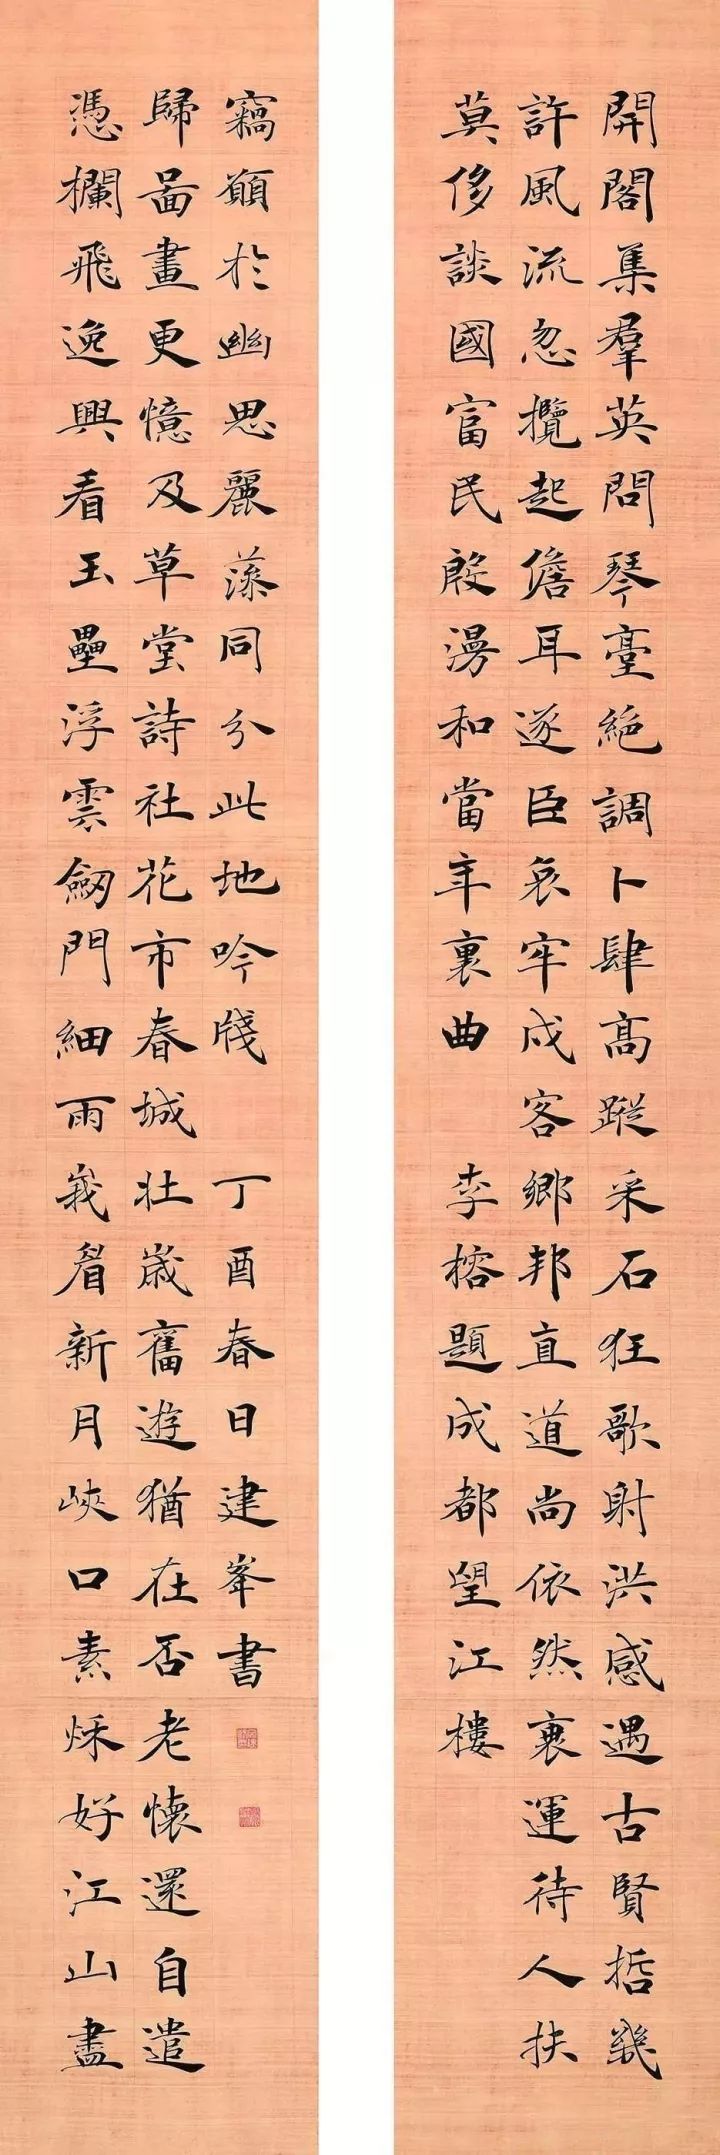 開閣集羣英問琴臺絕調卜肆高蹤采石狂歌射洪感遇古賢哲幾
許風流忽攬起儋耳逐臣哀牢戍客鄉邦直道尚依然衰運待人扶
莫侈談國富民殷漫和當年裏曲 李榕題成都望江樓
憑欄飛逸興看玉壘浮雲劒門細雨峩眉新月峽口素秌好江山盡
歸啚畫更憶及草堂詩社花市春城壯歲舊遊猶在否老懷還自遣
竊願於幽思麗藻同分此地吟牋 丁酉春日建峯書